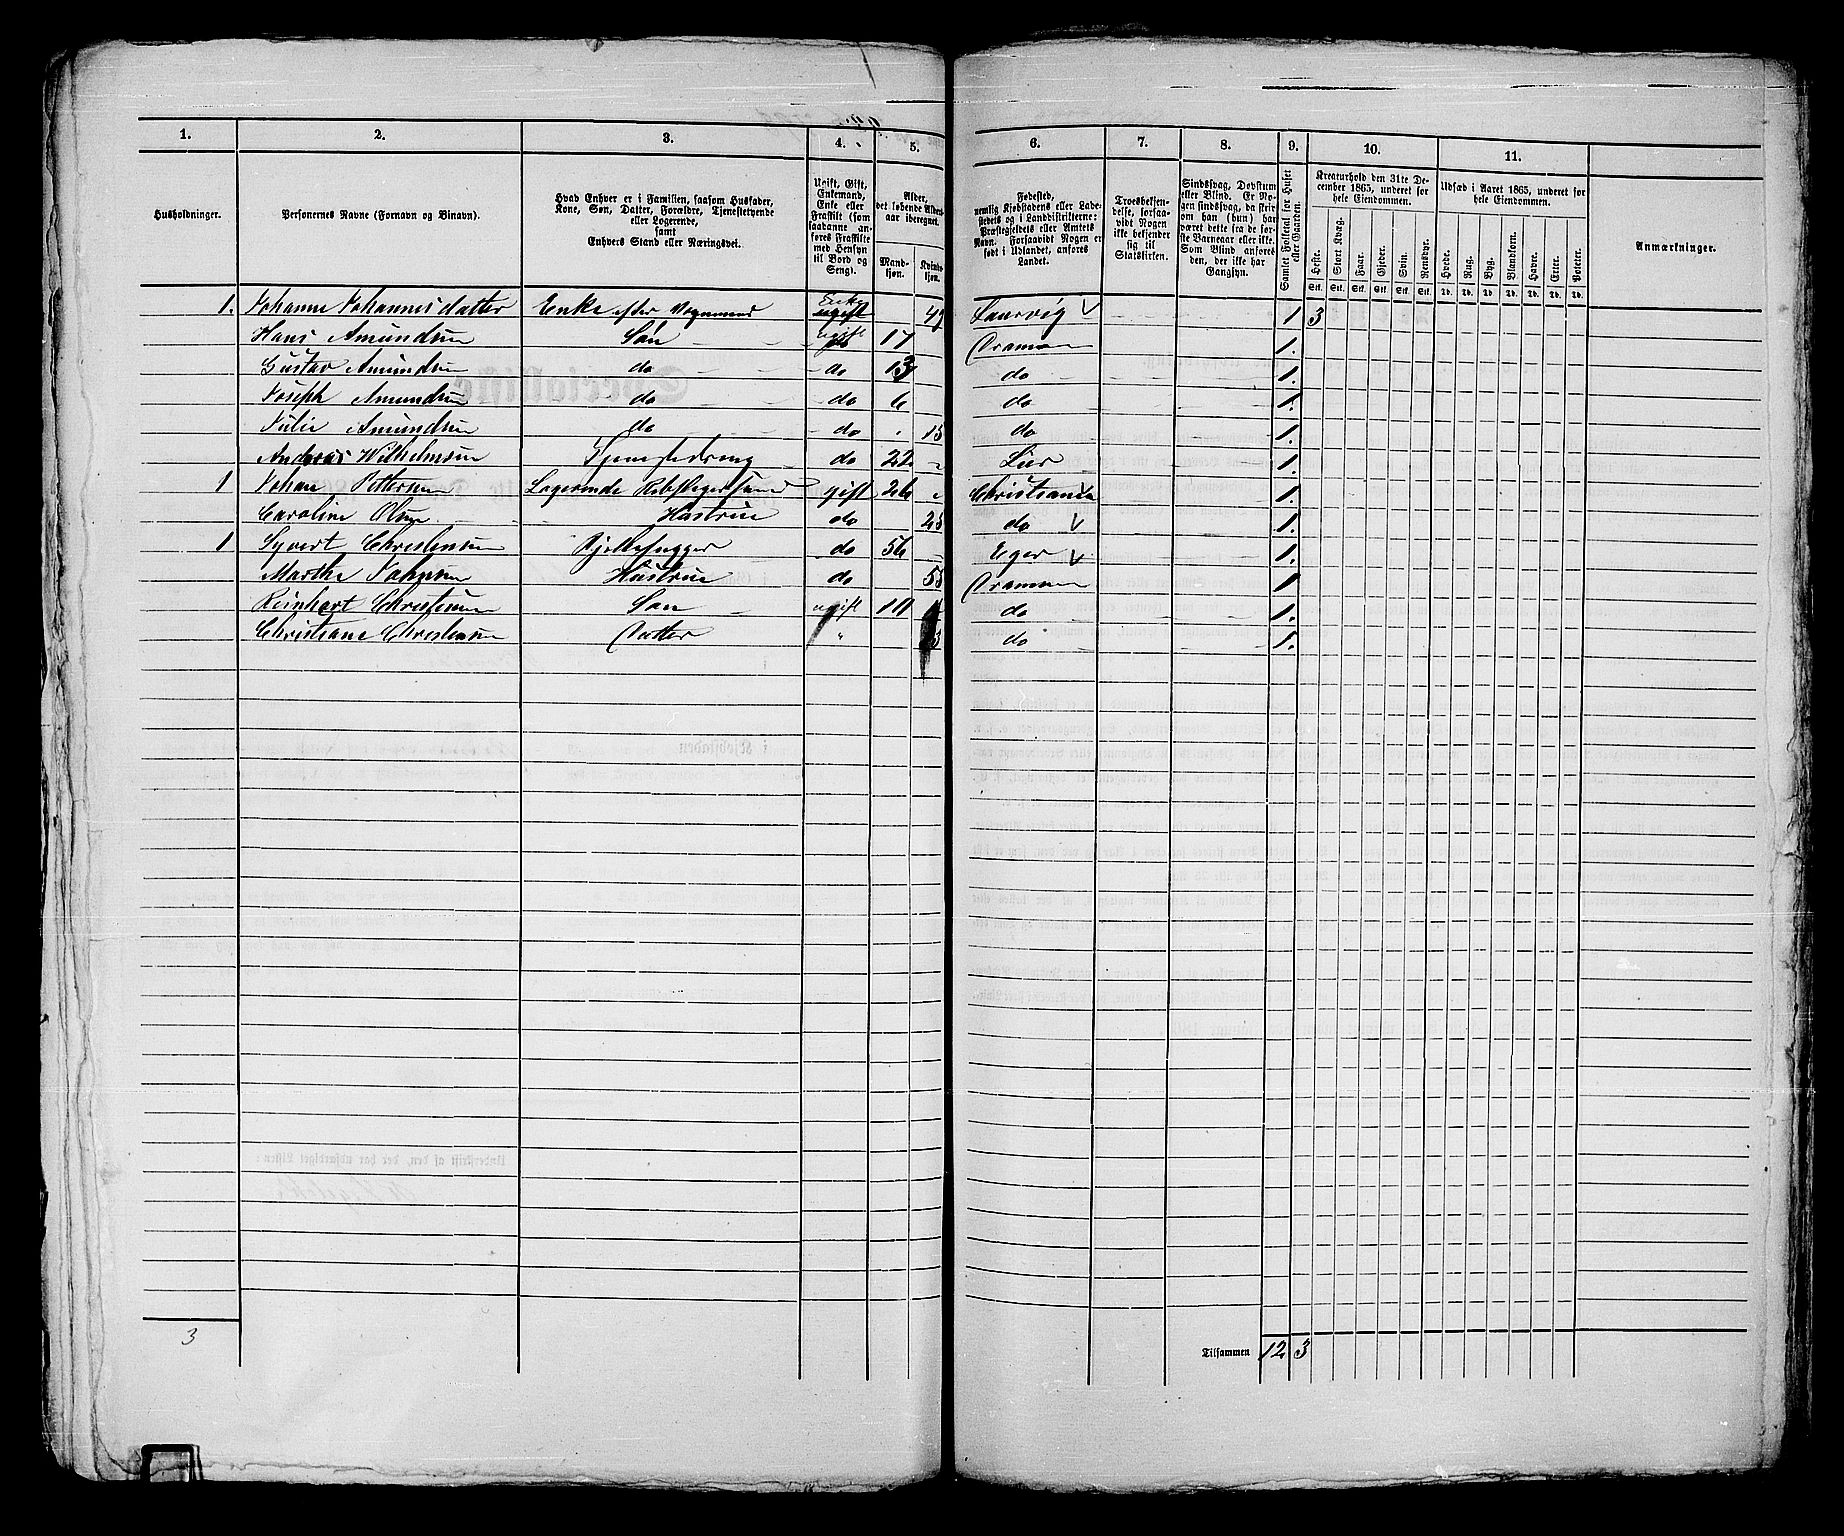 1. 2. 3. 4. 5. 6. 7. 8. 9. 10. 11.
Husholdninger.
Personernes Navne (Fornavn og Binavn).
Hvad Enhver er i Familien, saasom Husfader,
Kone, Søn, Datter, Forældre, Tjenestetyende
eller Logerende,
samt
Enhvers Stand eller Næringsvei.
Ugift, Gift,
Enkemand,
Enke eller
Fraskilt (som
saadanne an-
føres Fraskilte
med Hensyn
til Bord og
Seng).
Alder,
det løbende Alders-
aar iberegnet.
Mand-
kjøn.
Kvinde-
kjøn.
Fødested,
nemlig Kjøbstadens eller Lade-
stedets og i Landdistrikterne:
Præstegjeldets eller Amtets
Navn. Forsaavidt Nogen er
født i Udlandet, anføres
Landet.
Troesbekjen-
delse, forsaa-
vidt Nogen
ikke bekjender
sig til
Statskirken.
Sindssvag, Døvstum
eller Blind. Er No-
gen sindssvag, da skriv
om han (hun) har
været dette fra de før-
ste Barneaar eller ikke.
Som Blind anføres
den, der ikke har
Gangsyn.
Samlet Folketal for Huset
eller Gaarden.
Kreaturhold den 31te De-
cember 1865, underet for
hele Eiendommen.
Heste. Stort Kvæg. Faar. Gjeder. Svin. Rensdyr.
Stk. Stk. Stk. Stk. Stk. Stk.
Udsæd i Aaret 1865, underet for
hele Eiendommen.
Hvede. Rug. Byg. Blandkorn. Havre. Erter. Poteter.
Td. Td. Td. Td. Td. Td. Td.
Anmærkninger.
1. Johanne Johannesdatter Enke efter Vognmand Enke Laurvig 1 3
Hans Amundsen Søn ugift 17 Drammen 1.
Gustav Amundsen do do 13 do 1.
Joseph Amundsen do do 6 do 1.
Julie Amundsen do do 15 do 1.
Andreas Wilhelmsen Tjenestedreng do 22 Lier 1.
1 Johan Pettersen Logerende Rebslagersvend gift 26 Christiania 1.
Caroline Olsen Hustrue do 25 do 1.
1 Syvert Christensen do 56 Eger 1.
Marthe Hustrue do 55 Drammen 1
Reinhart Christensen Søn ugift do 1.
Christiane Christensen Datter " do 1.
3
Tilsammen 12 3